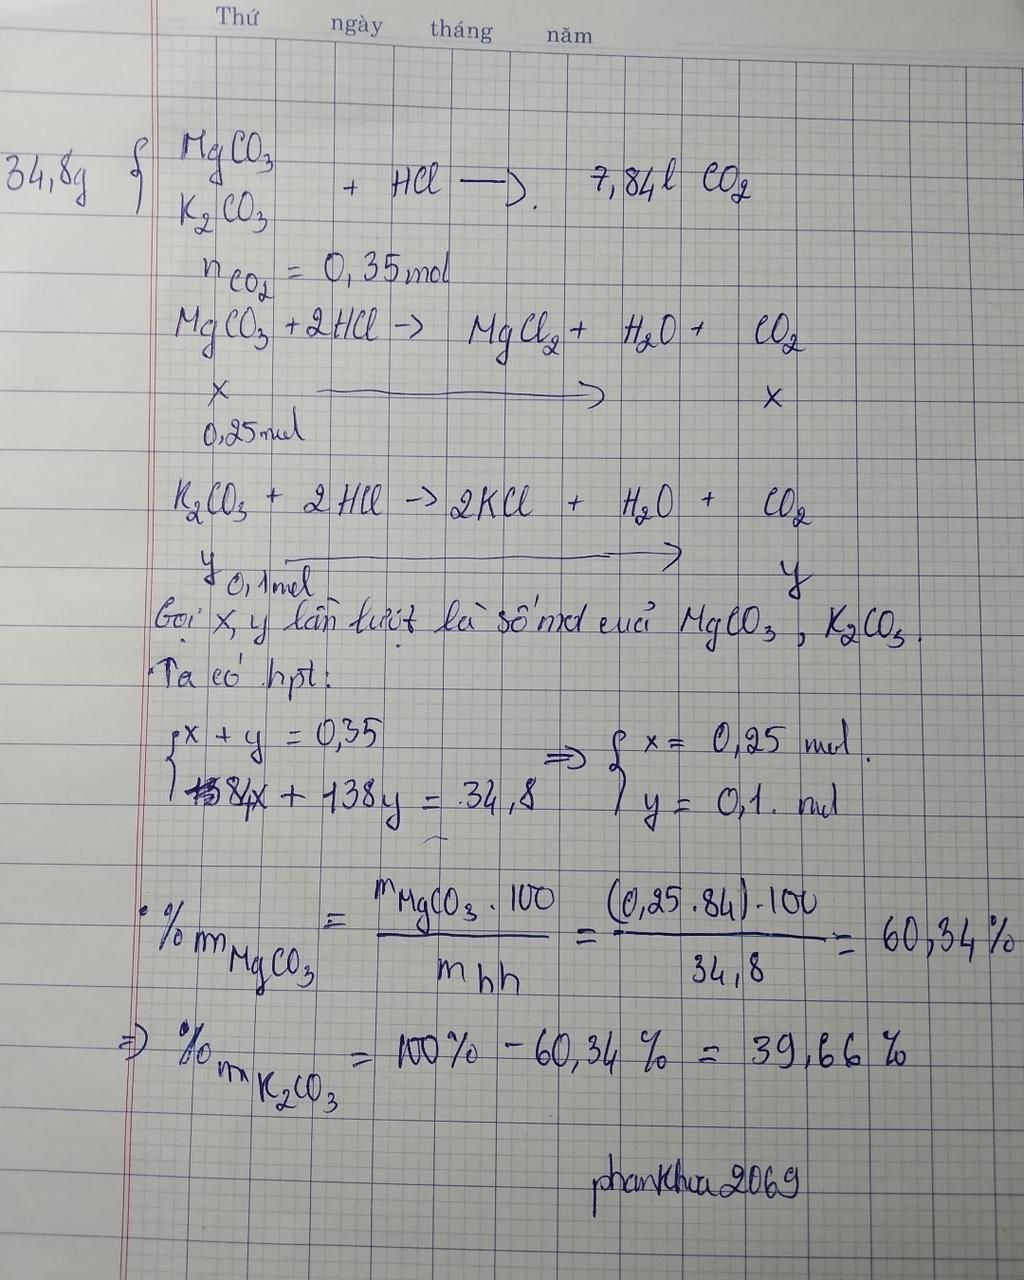 Thứ ngày tháng năm
34,8g { MgCO₃
K₂CO₃ + HCl → 7,84l CO₂
nCO₂ = 0,35mol
MgCO₃ + 2HCl → MgCl₂ + H₂O + CO₂
x → x
0,25mol
K₂CO₃ + 2HCl → 2KCl + H₂O + CO₂
y → y
0,1mol
Gọi x, y lần lượt là số mol của MgCO₃, K₂CO₃.
Ta có hpt:
{ x + y = 0,35 ⇒ { x = 0,25 mol.
84x + 138y = 34,8 y = 0,1 mol
%mMgCO₃ = mMgCO₃ . 100 / mhh = (0,25 . 84) . 100 / 34,8 = 60,34%
⇒ %mK₂CO₃ = 100% - 60,34% = 39,66%
phankhua2069